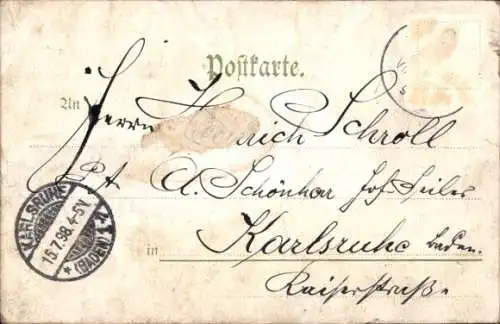 Postkarte.
An Herrn Heinrich Schroll
A. Schönhar Hof-Seiler
in Karlsruhe Baden.
Kaiserstraße
KARLSRUHE
15.7.98.4-5V.
(BADEN)